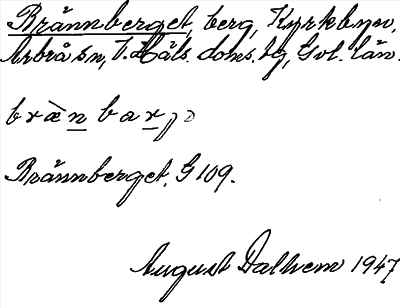 Brännberget, berg, Kyrkbyn,
Arbrå sn, V. Häls. doms. tg, Gvl. län.
brä̀n barjə
Brännberget. G 109.
August Dalhem 1947